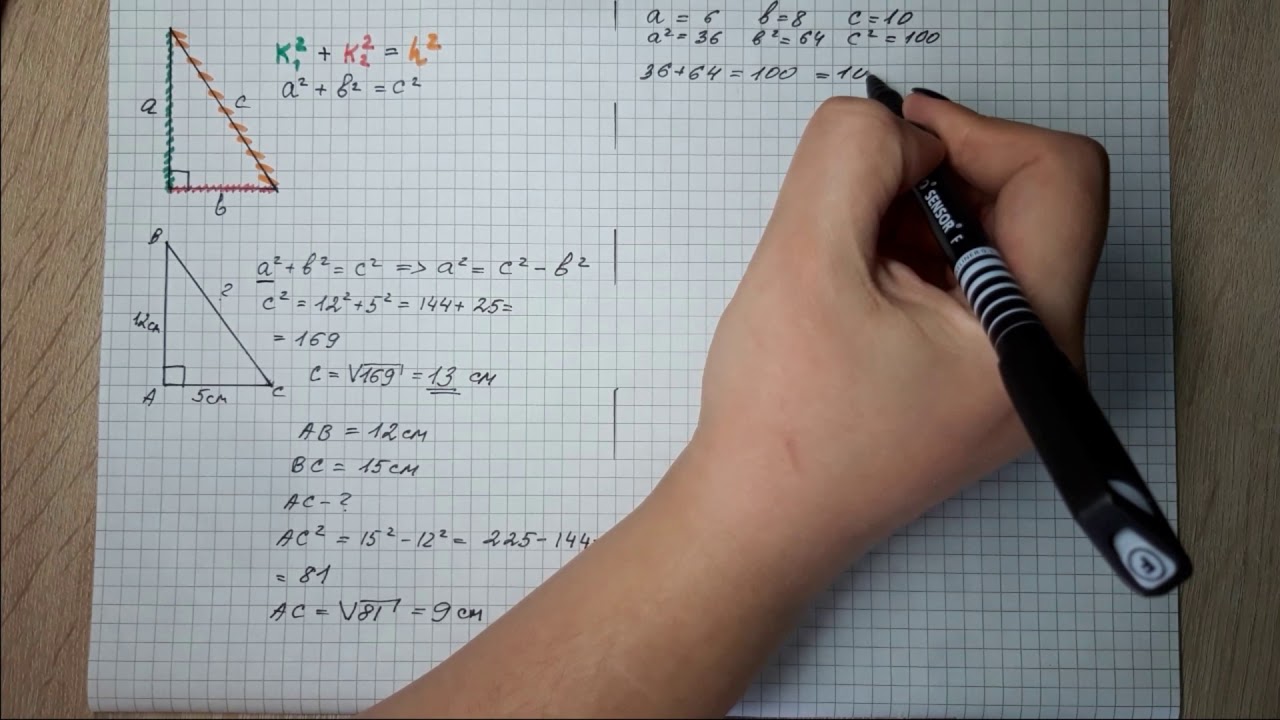 K₁² + K₂² = h²
a² + b² = c²
a
c
b
B
?
12см
A
5см
C
a² + b² = c² => a² = c² - b²
c² = 12² + 5² = 144 + 25 =
= 169
c = √169 = 13 см
AB = 12 см
BC = 15 см
AC - ?
AC² = 15² - 12² = 225 - 144 =
= 81
AC = √81 = 9 см
a = 6 b = 8 c = 10
a² = 36 b² = 64 c² = 100
36 + 64 = 100 = 10
SENSOR F